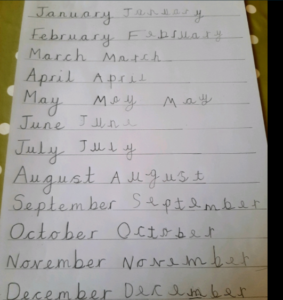 January January
February February
March March
April April
May May May
June June
July July
August August
September September
October October
November November
December December